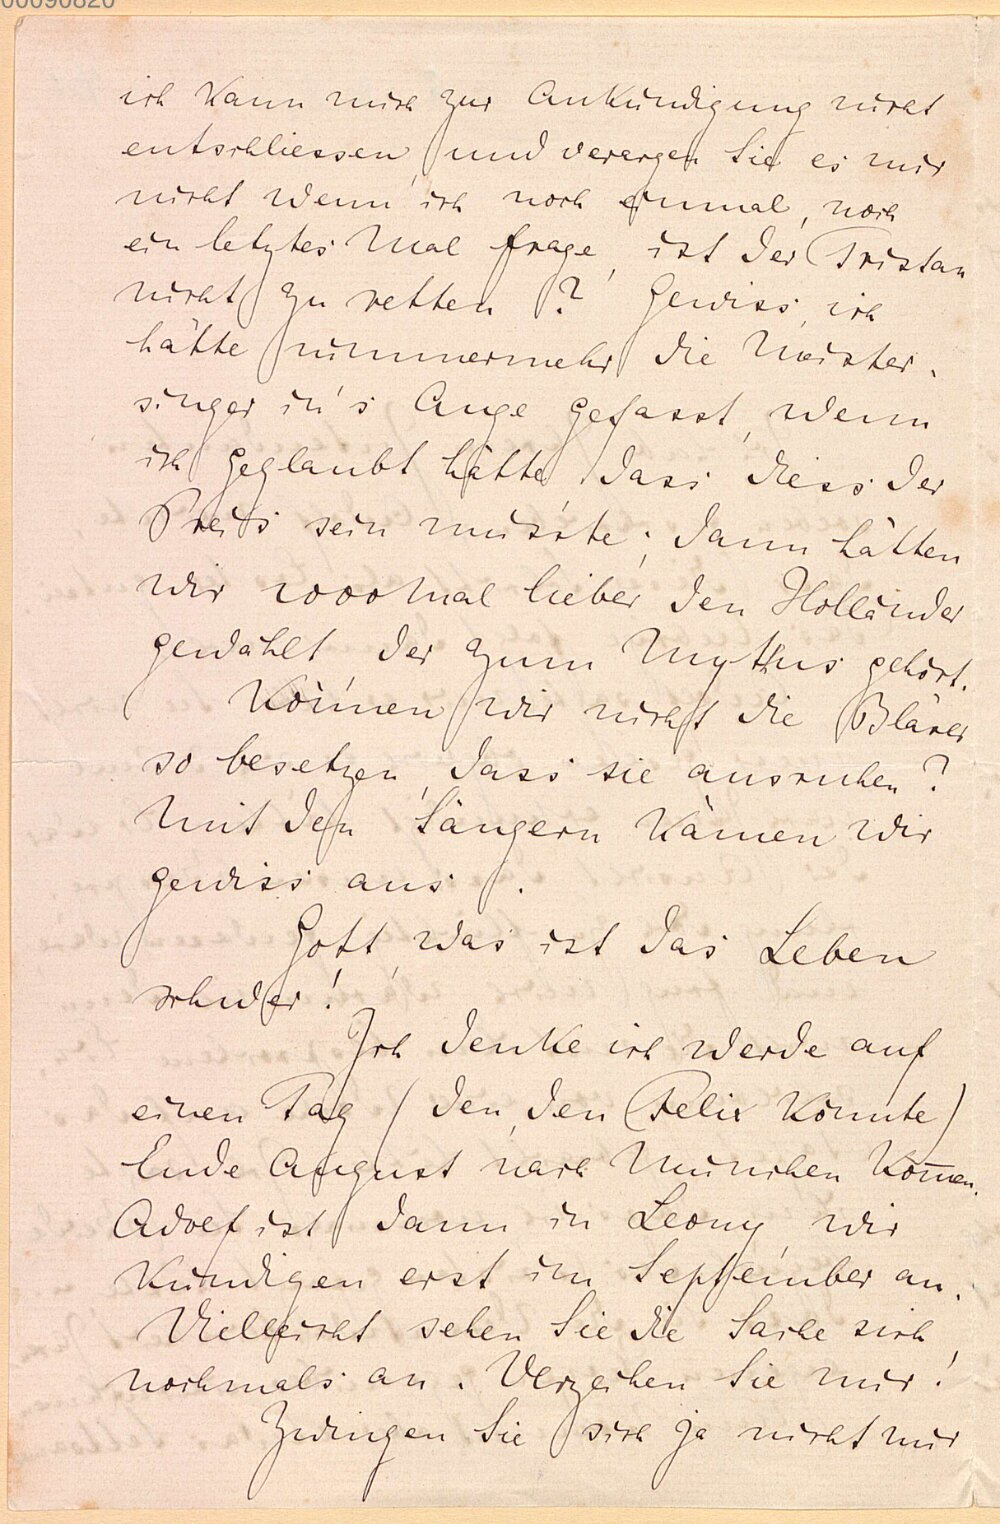 00090820
ich kann mich zur Ankündigung nicht
entschliessen, und verargen Sie es mir
nicht wenn ich noch einmal, noch
ein letztes Mal frage, ist der Tristan
nicht zu retten? Gewiss, ich
hätte nimmermehr die Meister-
singer in's Auge gefasst, wenn
ich geglaubt hätte, dass diess der
Preis sein müsste; dann hätten
wir 1000 Mal lieber den Holländer
gewählt der zum Mythus gehört.
Können wir nicht die Bläser
so besetzen, dass sie ausruhen?
Mit den Sängern kämen wir
gewiss aus.
Gott, was ist das Leben
schwer!
Ich denke ich werde auf
einen Tag (den, den Felix könnte)
Ende August nach München kom̅en.
Adolf ist dann in Leony, wir
kündigen erst im September an.
Vielleicht sehen Sie die Sache sich
nochmals an. Verzeihen Sie mir!
Zwingen Sie sich ja nicht mir